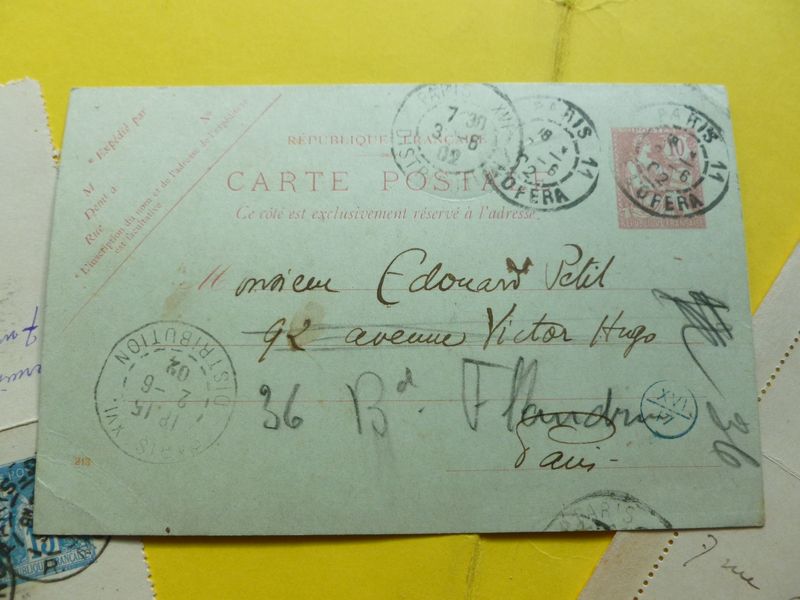 * Expédié par
N°
M
Demt à
Rue
* L'inscription du nom et de l'adresse de l'expéditeur
est facultative
RÉPUBLIQUE FRANÇAISE
CARTE POSTALE
Ce côté est exclusivement réservé à l'adresse.
PARIS XVI
7 30
3 - 6
02
PARIS 11
18
1 - 6
02
OPERA
PARIS 11
18
1 - 6
02
OPERA
10
Monsieur Edouard Petit
92 avenue Victor Hugo
36 Bd. Flandrin
Paris
36
PARIS XVI
DISTRIBUTION
15
2 - 6
02
213
PARIS
15